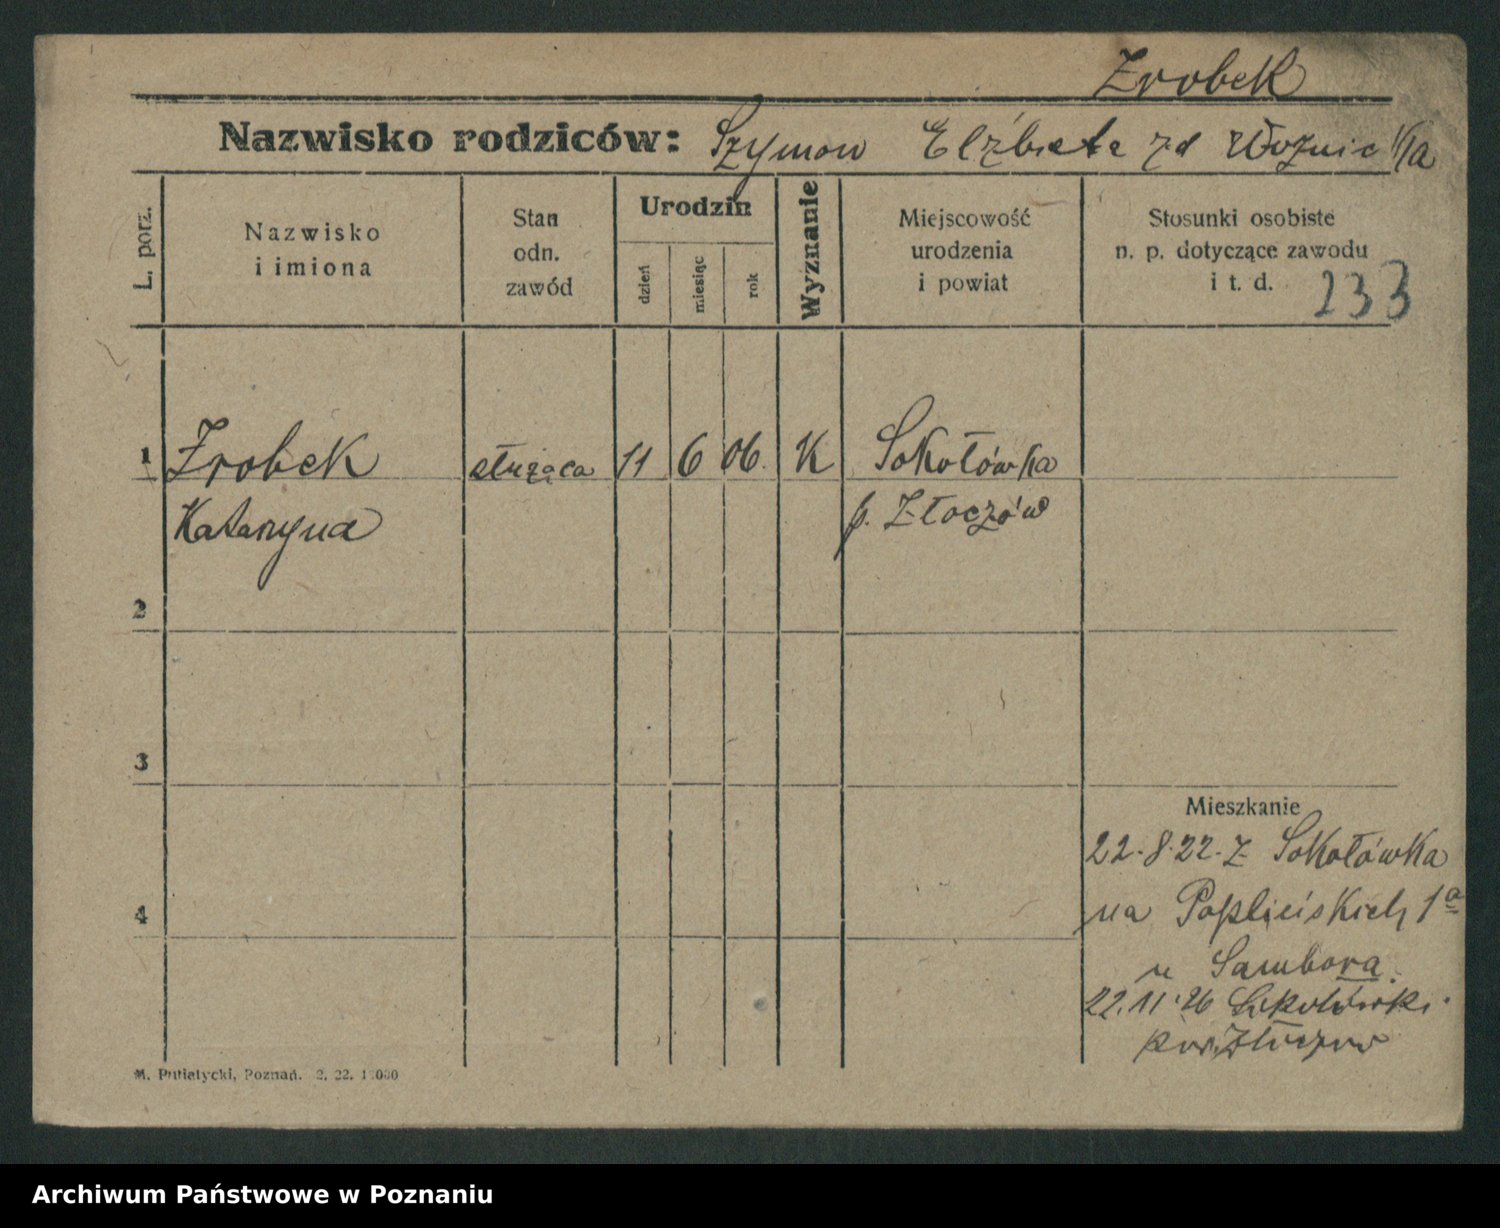 Zrobek
Nazwisko rodziców: Szymon Elżbieta zd Woźnicka
L. porz.
Nazwisko
i imiona
Stan
odn.
zawód
Urodzin
dzień
miesiąc
rok
Wyznanie
Miejscowość
urodzenia
i powiat
Stosunki osobiste
n. p. dotyczące zawodu
i t. d.
233
1 Zrobek służąca 11 6 06. K Sokołówka
Katarzyna p. Złoczów
2
3
4
Mieszkanie
22.8.22. z Sokołówka
na Poplińskich 1a
u Sambora.
22.11.26 Sokołówki
pow. Złoczów
M. Putiatycki, Poznań. 2. 22.
Archiwum Państwowe w Poznaniu